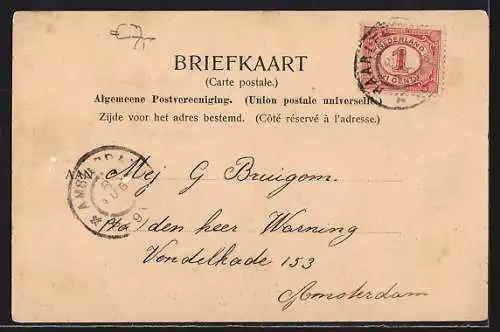 BRIEFKAART
(Carte postale.)
Algemeene Postvereeniging. (Union postale universelle)
Zijde voor het adres bestemd. (Côté réservé à l'adresse.)
NEDERLAND
1
CENT
AAN Mej G Bruigom.
den heer Warning
Vondelkade 153
Amsterdam